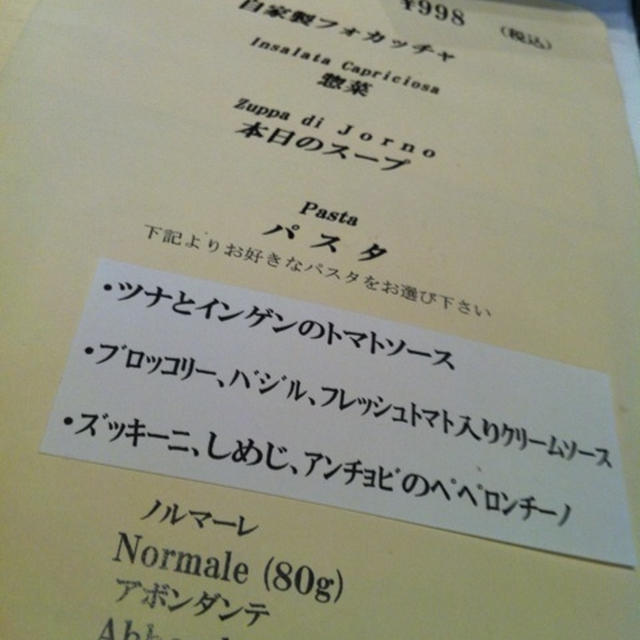 ¥998 (税込)
自家製フォカッチャ
Insalata Capricciosa
惣菜
Zuppa di Jorno
本日のスープ
Pasta
パスタ
下記よりお好きなパスタをお選び下さい
・ツナとインゲンのトマトソース
・ブロッコリー、バジル、フレッシュトマト入りクリームソース
・ズッキーニ、しめじ、アンチョビのペペロンチーノ
ノルマーレ
Normale (80g)
アボンダンテ